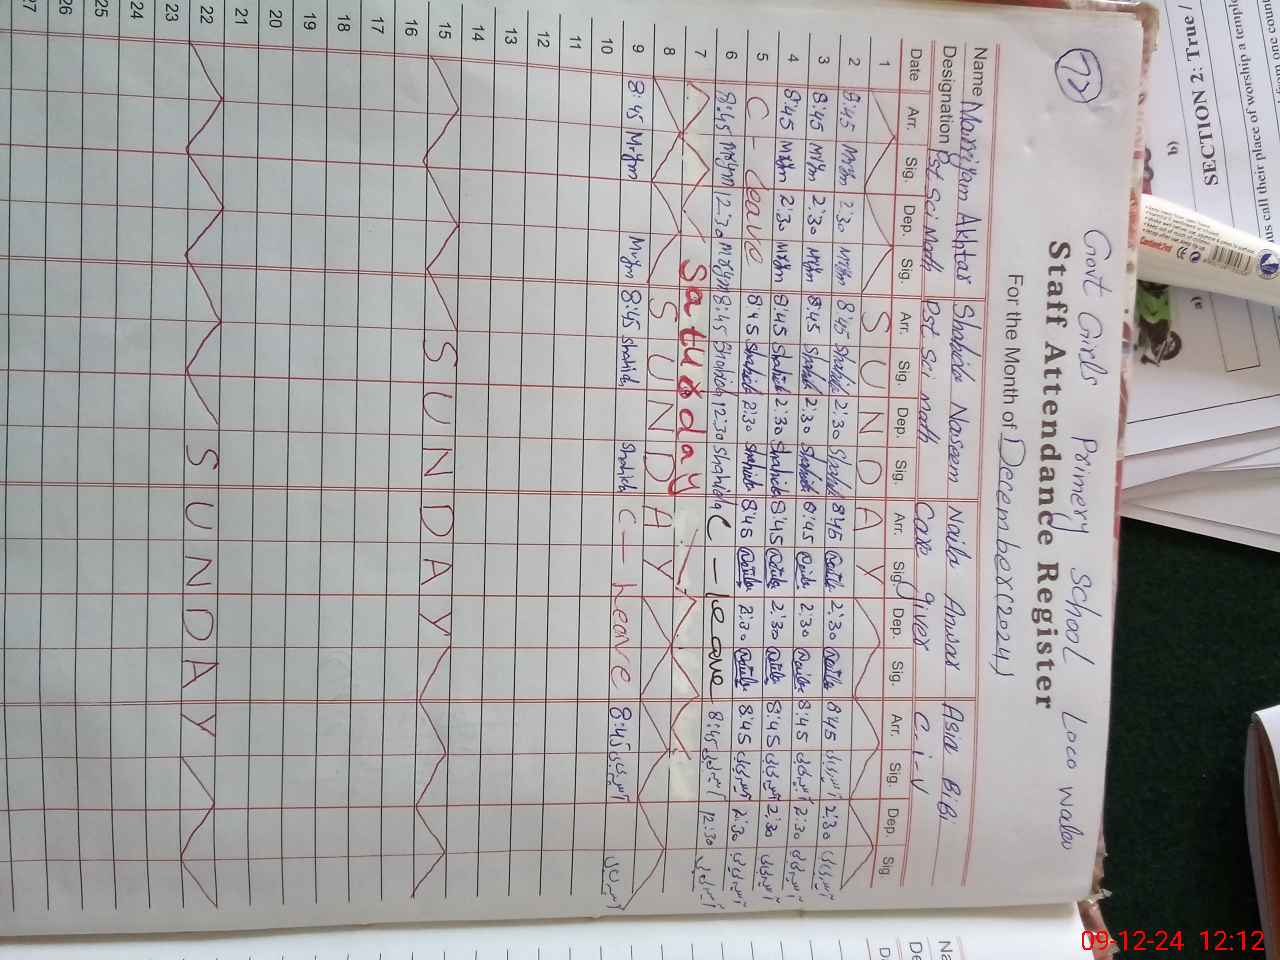 72
Govt Girls Primery School Loco walov
Staff Attendance Register
For the Month of December(2024)
Name Marriyam Akhtar Shahida Naseem Naila Anwar Asia BiBi
Designation Pst Sci Math Pst Sci math Care giver C-i-V
Date Arr. Sig. Dep. Sig. Arr. Sig. Dep. Sig. Arr. Sig. Dep. Sig. Arr. Sig. Dep. Sig.
1 SUNDAY
2 8:45 Mrym 2:30 Mrym 8:45 Shahida 2:30 Shahida 8:45 Naila 2:30 Naila 8:45 آسیہ بی بی 2:30 آسیہ بی بی
3 8:45 Mrym 2:30 Mrym 8:45 Shahida 2:30 Shahida 8:45 Naila 2:30 Naila 8:45 آسیہ بی بی 2:30 آسیہ بی بی
4 8:45 Mrym 2:30 Mrym 8:45 Shahida 2:30 Shahida 8:45 Naila 2:30 Naila 8:45 آسیہ بی بی 2:30 آسیہ بی بی
5 C - leave 8:45 Shahida 2:30 Shahida 8:45 Naila 2:30 Naila 8:45 آسیہ بی بی 2:30 آسیہ بی بی
6 8:45 Mrym 12:30 Mrym 8:45 Shahida 12:30 Shahida C - leave 8:45 آسیہ بی بی 12:30 آسیہ بی بی
7 Saturday
8 SUNDAY
9 8:45 Mrym Mrym 8:45 Shahida Shahida C - Leave 8:45 آسیہ بی بی آسیہ بی بی
10
11
12
13
14
15 SUNDAY
16
17
18
19
20
21
22 SUNDAY
23
24
25
26
27
SECTION 2: True /
b)
a)
us call their place of worship a temple
Content 7ml
09-12-24 12:12